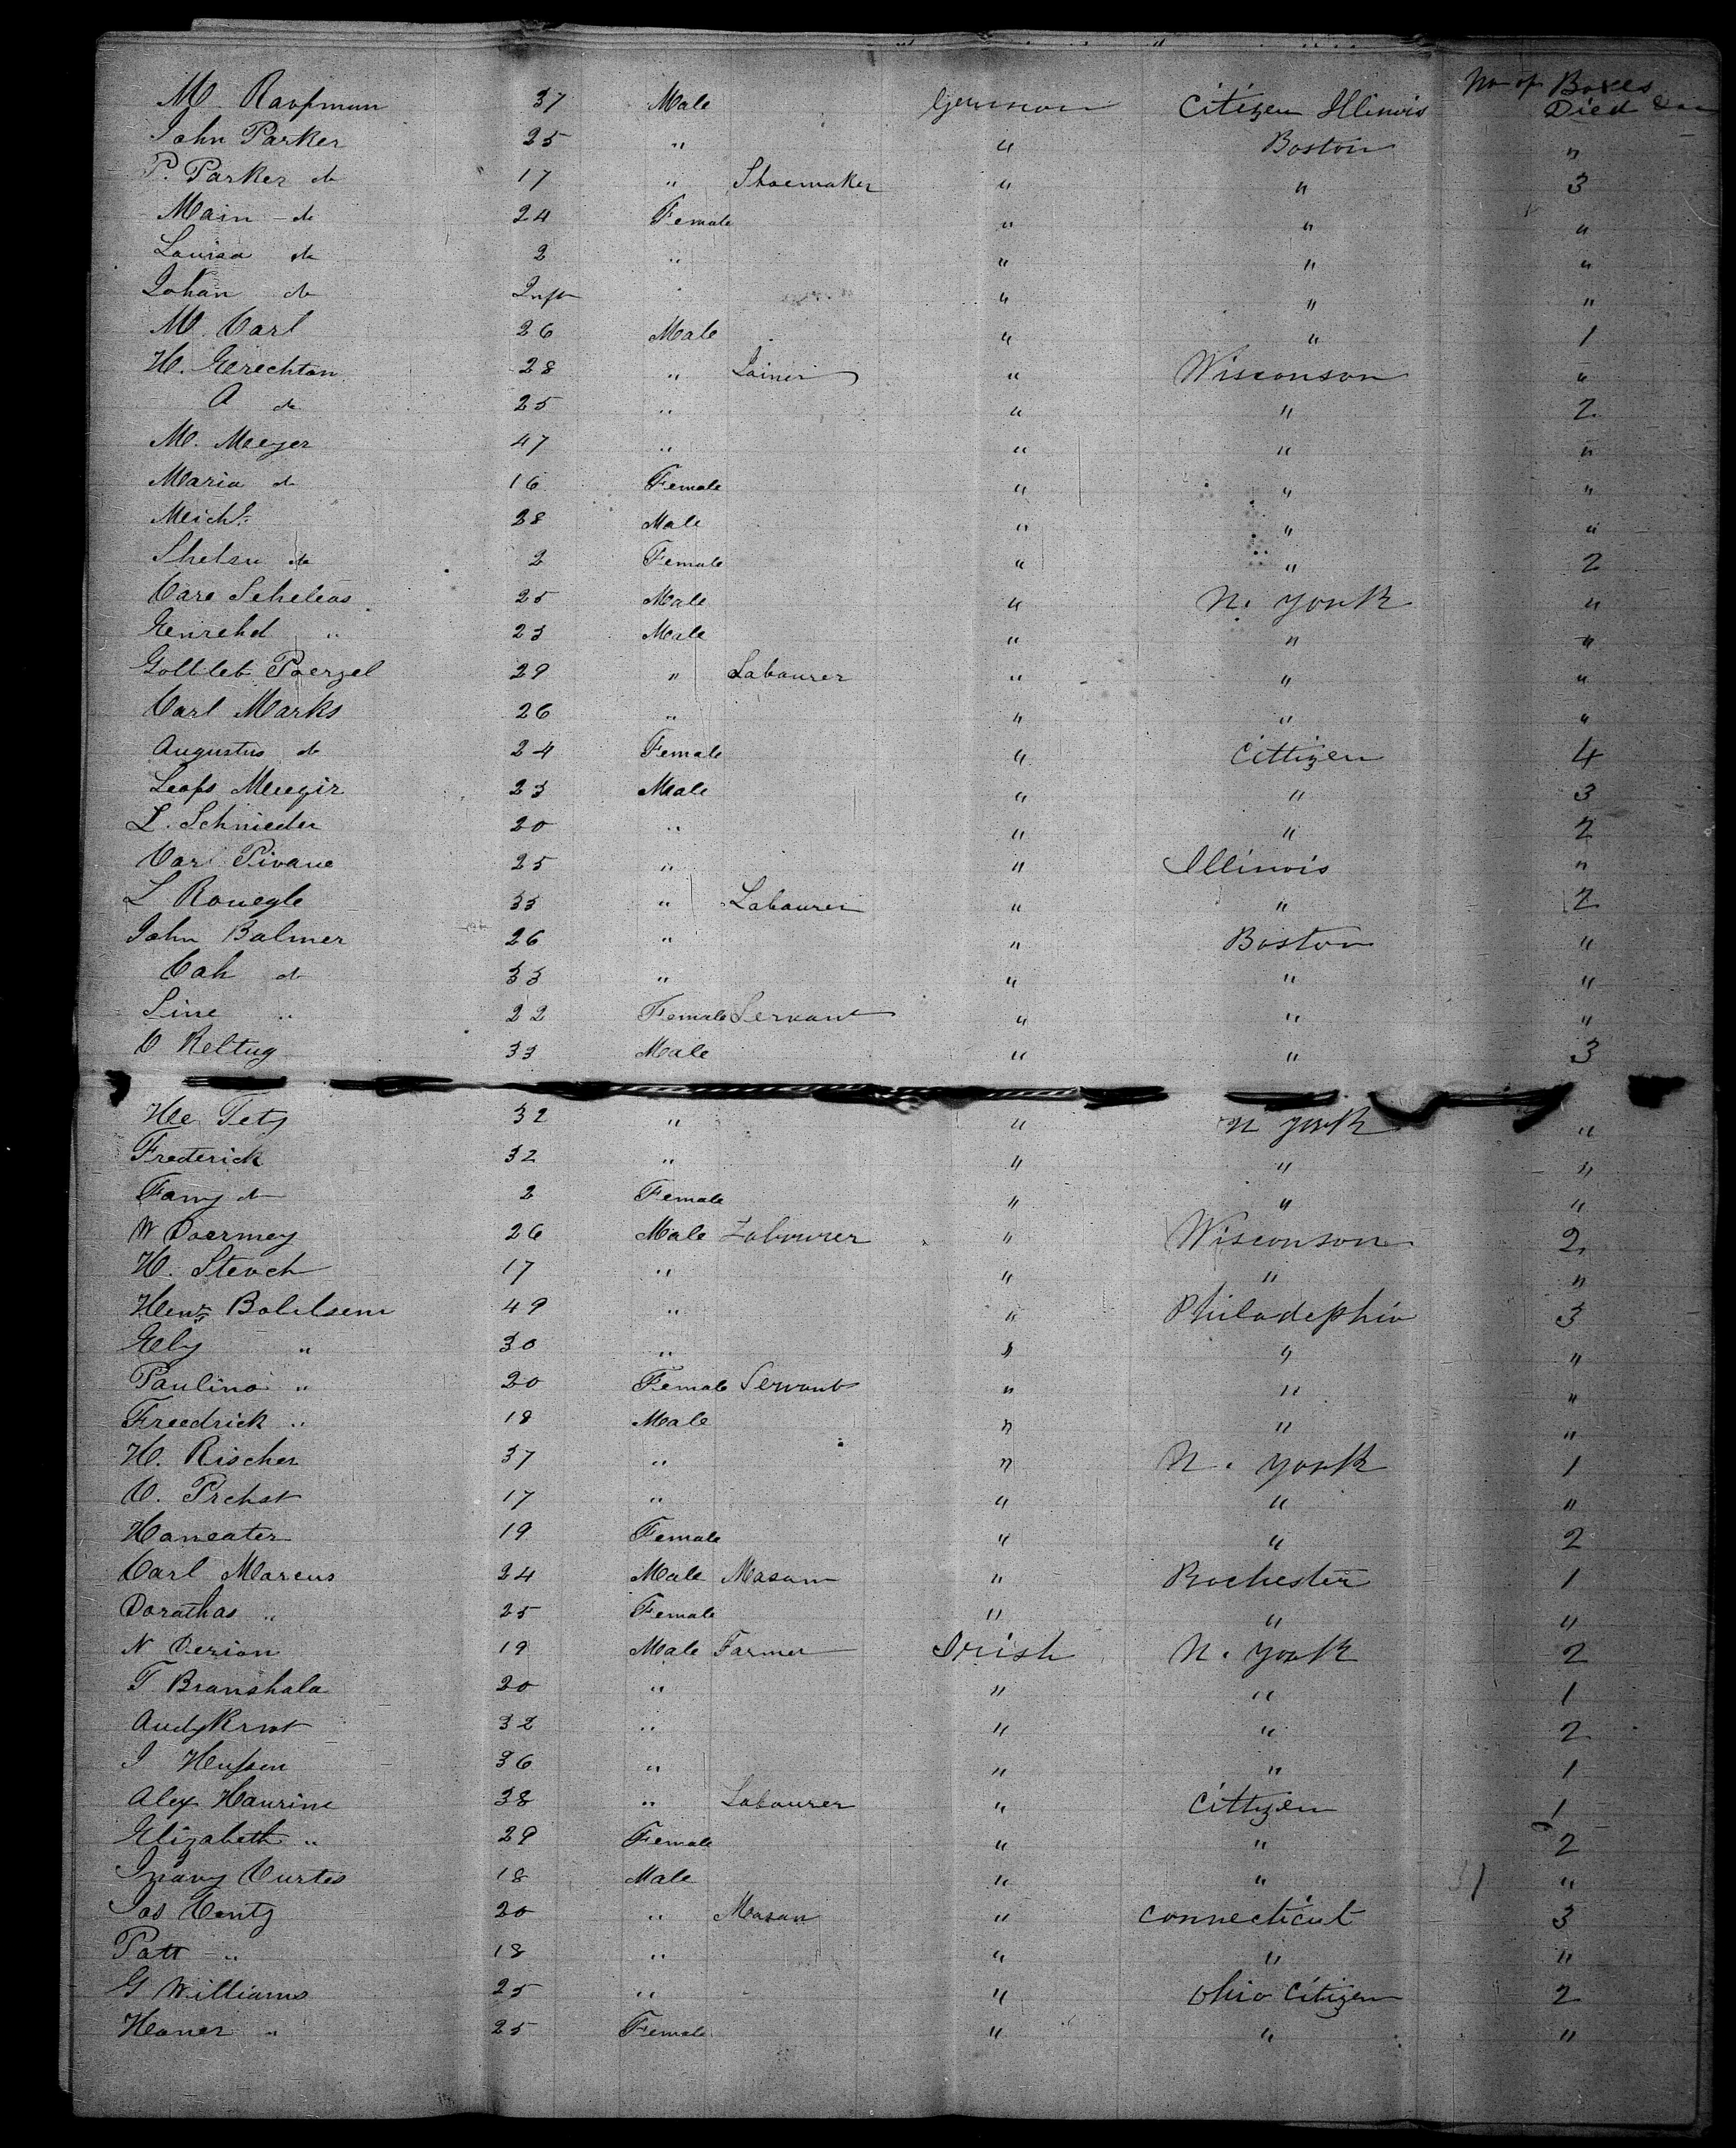 No of Boxes
M. Kaufman 37 Male German Citizen Illinois Died
John Parker 25 " " Boston "
P. Parker do 17 " Shoemaker " " 3
Main do 24 Female " " "
Louisa do 2 " " " "
Johan do Inft " " " "
M. Carl 26 Male " " 1
H. Gerechton 28 " Joiner " Wisconson "
A do 25 " " " 2
M. Meyer 47 " " " "
Maria do 16 Female " " "
Michl 28 Male " " "
do 2 Female " " 2
Care Scheleas 25 Male " N. York "
23 Male " " "
Gottleb Poerzel 29 " Labourer " " "
Carl Marks 26 " " " "
Augustus do 24 Female " Cittizen 4
23 Male " " 3
L. Schnieder 20 " " " 2
Carl Pivane 25 " " Illinois "
L Rouegle 33 " Labourer " " 2
John Balmer 26 " " Boston "
do 33 " " " "
Line " 22 Female Servant " " "
C Keltug 33 Male " " 3
Tetz 32 " " N York "
Frederick 32 " " " "
Fany do 2 Female " " "
W Doermey 26 Male Labourer " Wisconson 2
H. Stench 17 " " " "
Heny Bohlsem 49 " " Philadephia 3
Ely " 30 " " " "
Paulina " 20 Female Servant " " "
Freedrick " 18 Male " " "
H. Rischer 37 " " N. York 1
C. Prehst 17 " " " "
Haneater 19 Female " " 2
Carl Marcus 24 Male Mason " Rochester 1
Dorathas " 25 Female " " "
N Derion 19 Male Farmer Irish N. York 2
T Branshala 20 " " " 1
Andy 32 " " " 2
J 36 " " " 1
Alex Haurine 38 " Labourer " Cittizen 1
Elizabeth " 29 Female " " 2
Curtes 18 Male " " "
Jas Centz 20 " Mason " Connecticut 3
Patt " 18 " " " "
G Williams 25 " " Ohio Citizen 2
Haner " 25 Female " " "